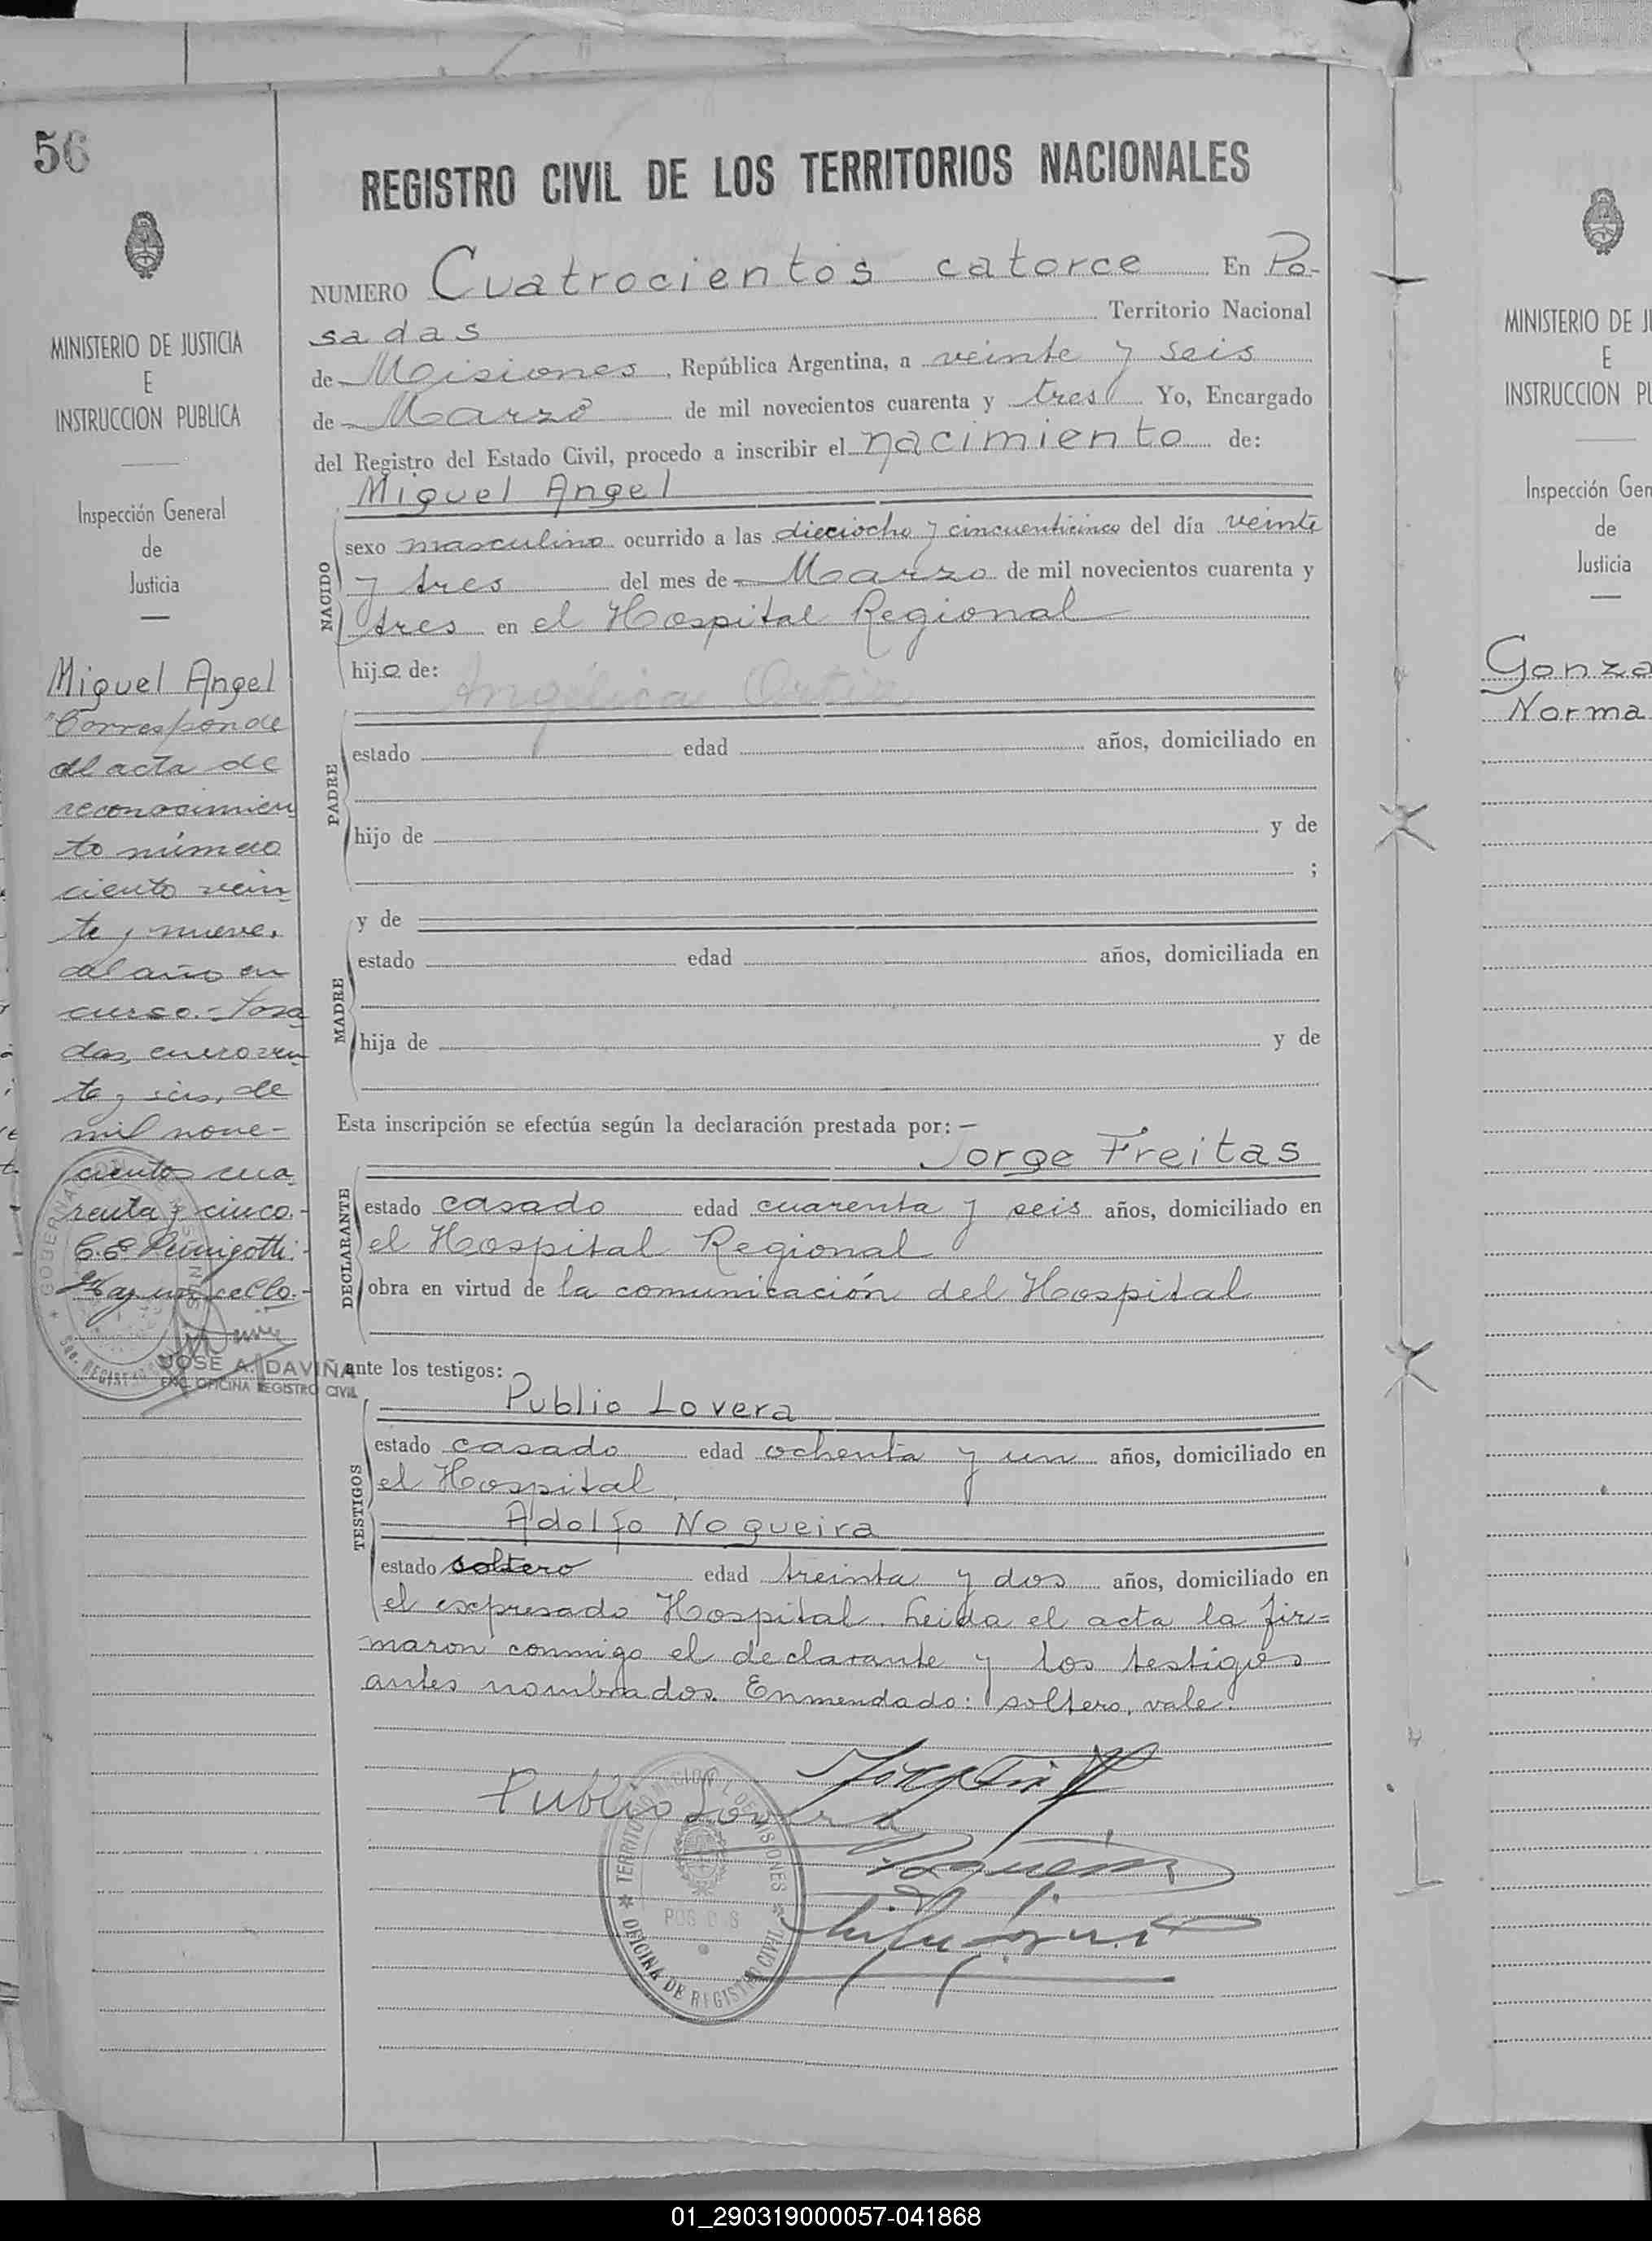 56
MINISTERIO DE JUSTICIA
E
INSTRUCCION PUBLICA
Inspección General
de
Justicia
Miguel Angel
"Corresponde
al acta de
reconocimien
to número
ciento vein
te y nueve,
del año en
curso.- Posa
das, enero vein
te y seis, de
mil nove-
cientos cua
renta y cinco.-
Hay un sello.-
JOSE A. DAVIÑA
ENC. OFICINA REGISTRO CIVIL
REGISTRO CIVIL DE LOS TERRITORIOS NACIONALES
NUMERO Cuatrocientos catorce En Po-
sadas Territorio Nacional
de Misiones, República Argentina, a veinte y seis
de Marzo de mil novecientos cuarenta y tres Yo, Encargado
del Registro del Estado Civil, procedo a inscribir el nacimiento de:
Miguel Angel
NACIDO
sexo masculino ocurrido a las dieciocho y cincuenticinco del día veinte
y tres del mes de Marzo de mil novecientos cuarenta y
tres en el Hospital Regional
hijo de:
Angélica Ortiz
PADRE
estado edad años, domiciliado en
hijo de y de
;
MADRE
y de
estado edad años, domiciliada en
hija de y de
Esta inscripción se efectúa según la declaración prestada por: —
Jorge Freitas
DECLARANTE
estado casado edad cuarenta y seis años, domiciliado en
el Hospital Regional
obra en virtud de la comunicación del Hospital
ante los testigos:
Publio Lovera
TESTIGOS
estado casado edad ochenta y un años, domiciliado en
el Hospital
Adolfo Nogueira
estado soltero edad treinta y dos años, domiciliado en
el expresado Hospital. Leida el acta la fir=
maron conmigo el declarante y los testigos
antes nombrados. Enmendado: soltero, vale.
Publio Lovera
TERRITORIO NACIONAL DE MISIONES
OFICINA DE REGISTRO CIVIL
MINISTERIO DE J
E
INSTRUCCION P
Inspección Gen
de
Justicia
Gonza
Norma
01_290319000057-041868